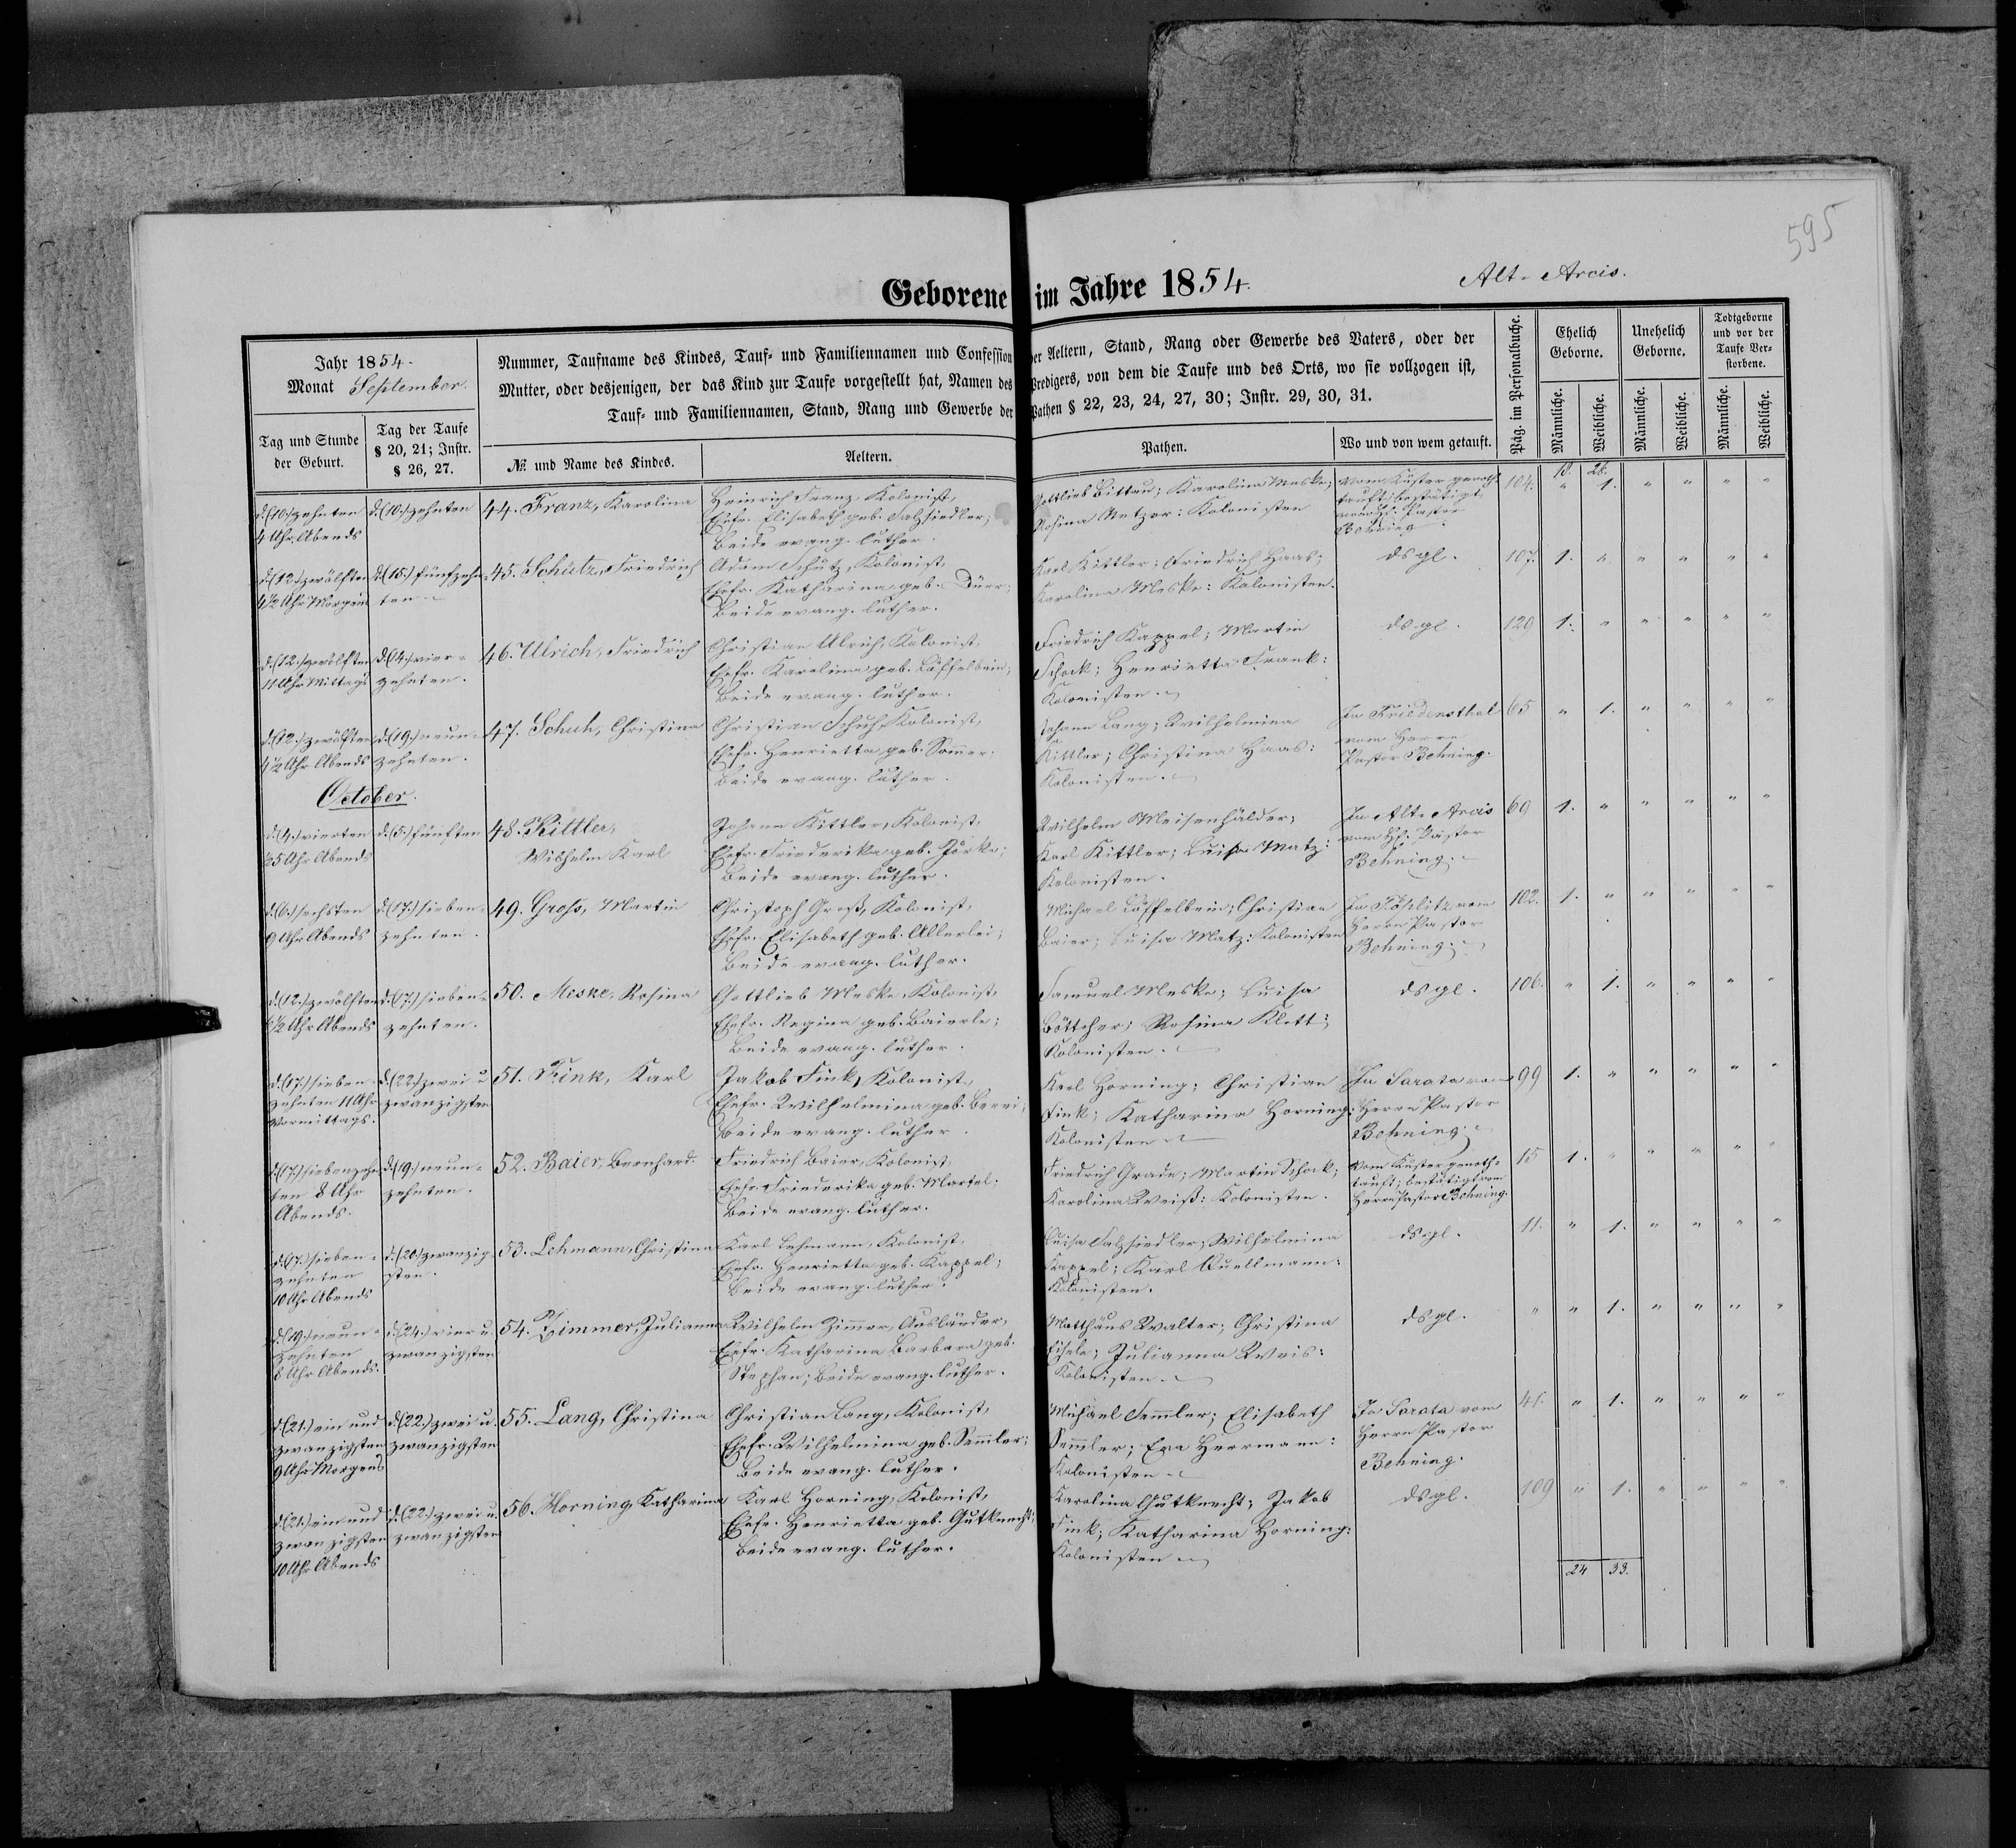 595
Alt-Arcis.
Geborene im Jahre 1854.
Jahr 1854.
Monat September.
Nummer, Taufname des Kindes, Tauf- und Familiennamen und Confession der Aeltern, Stand, Rang oder Gewerbe des Vaters, oder der
Mutter, oder desjenigen, der das Kind zur Taufe vorgestellt hat, Namen des Predigers, von dem die Taufe und des Orts, wo sie vollzogen ist,
Tauf- und Familiennamen, Stand, Rang und Gewerbe der Pathen § 22, 23, 24, 27, 30; Instr. 29, 30, 31.
Pag. im Personalbuche.
Ehelich
Geborne.
Unehelich
Geborne.
Todtgeborne
und vor der
Taufe Ver-
storbene.
Tag und Stunde
der Geburt.
Tag der Taufe
§ 20, 21; Instr.
§ 26, 27.
№ und Name des Kindes.
Aeltern.
Pathen.
Wo und von wem getauft.
Männliche.
Weibliche.
Männliche.
Weibliche.
Männliche.
Weibliche.
18. 26.
d. (10.) zehnten
4 Uhr Abends
d. (10.) zehnten
44. Franz, Karolina
Heinrich Franz, Kolonist,
Ehefr. Elisabeth geb. Salzsiedler;
beide evang. luther.
Gottlieb Bittau; Karolina Meske;
Rosina Metzger: Kolonisten
vom Küster genoth-
tauft; bestätigt
vom H. Pastor
Behning
104. " 1. " " " "
d. (12.) zwölften
4½ Uhr Morgens
d. (15.) fünfzehn-
ten
45. Schütz, Friedrich
Adam Schütz, Kolonist,
Ehefr. Katharina geb. Dürr;
beide evang. luther.
Karl Kittler; Friedrich Haas;
Karolina Meske: Kolonisten.
dsgl.
107. 1. " " " " "
d. (12.) zwölften
11 Uhr Mittags
d. (14.) vier-
zehnten.
46. Ulrich, Friedrich
Christian Ulrich, Kolonist,
Ehefr. Karolina geb. Löffelbein;
beide evang. luther.
Friedrich Kappel; Martin
Schock; Henrietta Frank:
Kolonisten.
dsgl.
120 1. " " " " "
d. (12.) zwölften
4½ Uhr Abends
d. (19.) neun-
zehnten.
47. Schuh, Christina
Christian Schuh, Kolonist,
Ehefr. Henrietta geb. Sommer.
beide evang. luther.
Johann Lang; Wilhelmina
Kittler; Christina Haas:
Kolonisten.
In Friedensthal
vom Herrn
Pastor Behning.
65 " 1. " " " "
October.
d. (4.) vierten
Uhr Abends
d. (5.) fünften
48. Kittler,
Wilhelm Karl
Johann Kittler, Kolonist,
Ehefr. Friederika geb. Jörke;
beide evang. luther.
Wilhelm Meisenhälder;
Karl Kittler; Luisa Matz:
Kolonisten.
In Alt-Arcis
vom H. Pastor
Behning.
69 1. " " " " "
d. (6.) sechsten
9 Uhr Abends
d. (17.) sieben-
zehnten.
49. Gross, Martin
Christoph Gross, Kolonist,
Ehefr. Elisabeth geb. Allerlei;
beide evang. luther.
Michael Löffelbein; Christian
Baier; Luisa Matz: Kolonisten
In Töplitz vom
Herrn Pastor
Behning.
102. 1. " " " " "
d. (12.) zwölften
½ Uhr Abends
d. (17.) sieben-
zehnten.
50. Meske, Rosina
Gottlieb Meske, Kolonist,
Ehefr. Regina geb. Baierle;
beide evang. luther.
Samuel Meske; Luisa
Böttcher; Rosina Klett:
Kolonisten.
dsgl.
106. " 1. " " " "
d. (17.) sieben-
zehnten 11 Uhr
Vormittags.
d. (22.) zwei u.
zwanzigsten
51. Fink, Karl
Jakob Fink, Kolonist,
Ehefr. Wilhelmina geb.
beide evang. luther.
Karl Horning; Christian
Fink; Katharina Horning:
Kolonisten
In Sarata vom
Herrn Pastor
Behning.
99 1. " " " " "
d. (17.) siebenzehn-
ten 8 Uhr
Abends.
d. (19.) neun-
zehnten.
52. Baier, Bernhard.
Friedrich Baier, Kolonist,
Ehefr. Friederika geb. Martel;
beide evang. luther.
Friedrich Grade; Martin Schock;
Karolina Weiß: Kolonisten.
vom Küster genoth-
tauft; bestätigt vom
Herrn Pastor Behning.
15 1. " " " " "
d. (17.) sieben-
zehnten
10 Uhr Abends
d. (20.) zwanzig-
sten.
53. Lehmann, Christina
Karl Lehmann, Kolonist,
Ehefr. Henrietta geb. Kappel;
beide evang. luther.
Luisa Salzsiedler; Wilhelmina
Kappel; Karl Quellmann:
Kolonisten.
dsgl.
11. " 1. " " " "
d. (19.) neun-
zehnten
8 Uhr Abends.
d. (24.) vier u.
zwanzigsten
54. Zimmer, Julianna
Wilhelm Zimmer, Ausländer,
Ehefr. Katharina Barbara geb.
Stephan; beide evang. luther.
Matthäus Walter; Christina
Eisele; Julianna Weis:
Kolonisten.
dsgl.
" " 1. " " " "
d. (21.) ein und
zwanzigsten
9 Uhr Morgens
d. (22.) zwei u.
zwanzigsten
55. Lang, Christina
Christian Lang, Kolonist,
Ehefr. Wilhelmina geb. Semmler;
beide evang. luther.
Michael Semmler; Elisabeth
Semmler; Eva Herrmann:
Kolonisten
In Sarata vom
Herrn Pastor
Behning.
41. " 1. " " " "
d. (21.) ein und
zwanzigsten
10 Uhr Abends
d. (22.) zwei u.
zwanzigsten
56. Horning, Katharina
Karl Horning, Kolonist,
Ehefr. Henrietta geb. Gutknecht;
beide evang. luther.
Karolina Gutknecht; Jakob
Fink; Katharina Horning:
Kolonisten
dsgl.
109 " 1. " " " "
24 33.